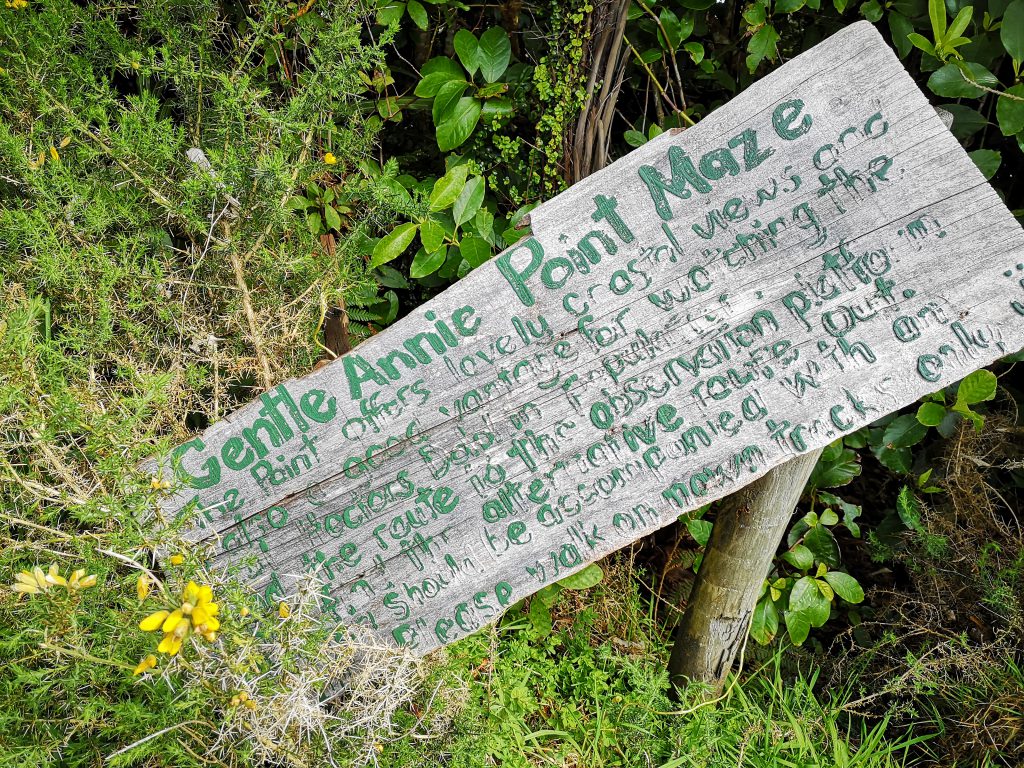 Gentle Annie Point Maze
The Point offers lovely coastal views and
also a good vantage for watching the
Hectors Dolphin
the route to the observation platform
the alternative route out.
should be assompanied with an
Please walk on mown tracks only,